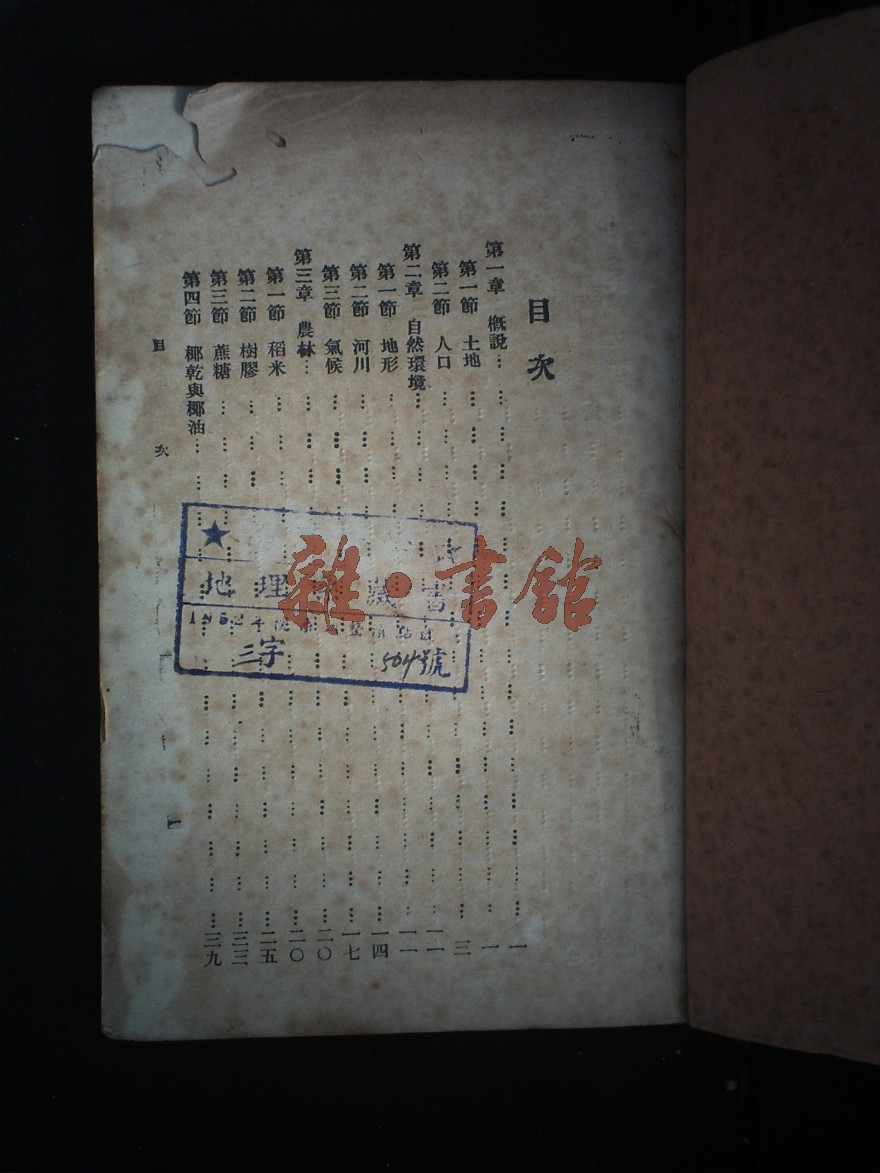 目次
第一章 概說…………一
第一節 土地…………一
第二節 人口…………三
第二章 自然環境…………一一
第一節 地形…………一一
第二節 河川…………一四
第三節 氣候…………一七
第三章 農林…………二〇
第一節 稻米…………二〇
第二節 樹膠…………二五
第三節 蔗糖…………三三
第四節 椰乾與椰油…………三九
目次
一
地理 藏書
1952年
三字 504號
雜·書館